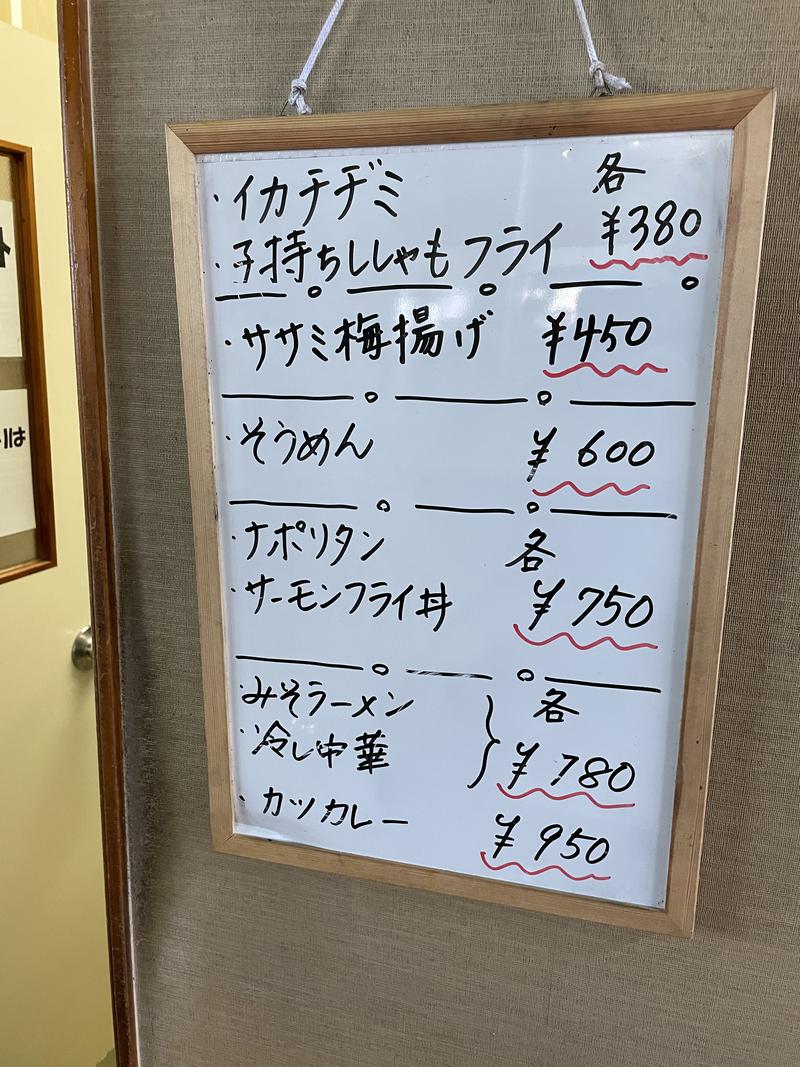 ・イカチヂミ 各
・子持ちししゃもフライ ¥380
・ササミ梅揚げ ¥450
・そうめん ¥600
・ナポリタン 各
・サーモンフライ丼 ¥750
・みそラーメン 各
・冷し中華 ¥780
・カツカレー ¥950
は